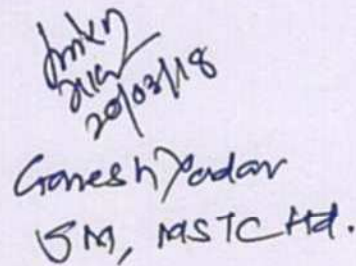 20/03/18
Ganesh Yadav
SM, MSTC Ltd.